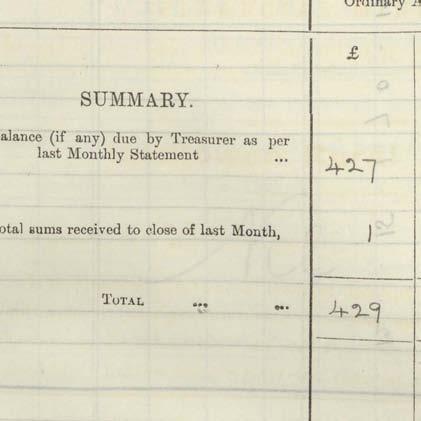 Ordinary A
£
SUMMARY.
alance (if any) due by Treasurer as per
last Monthly Statement ...
427
otal sums received to close of last Month,
1
TOTAL ... ...
429